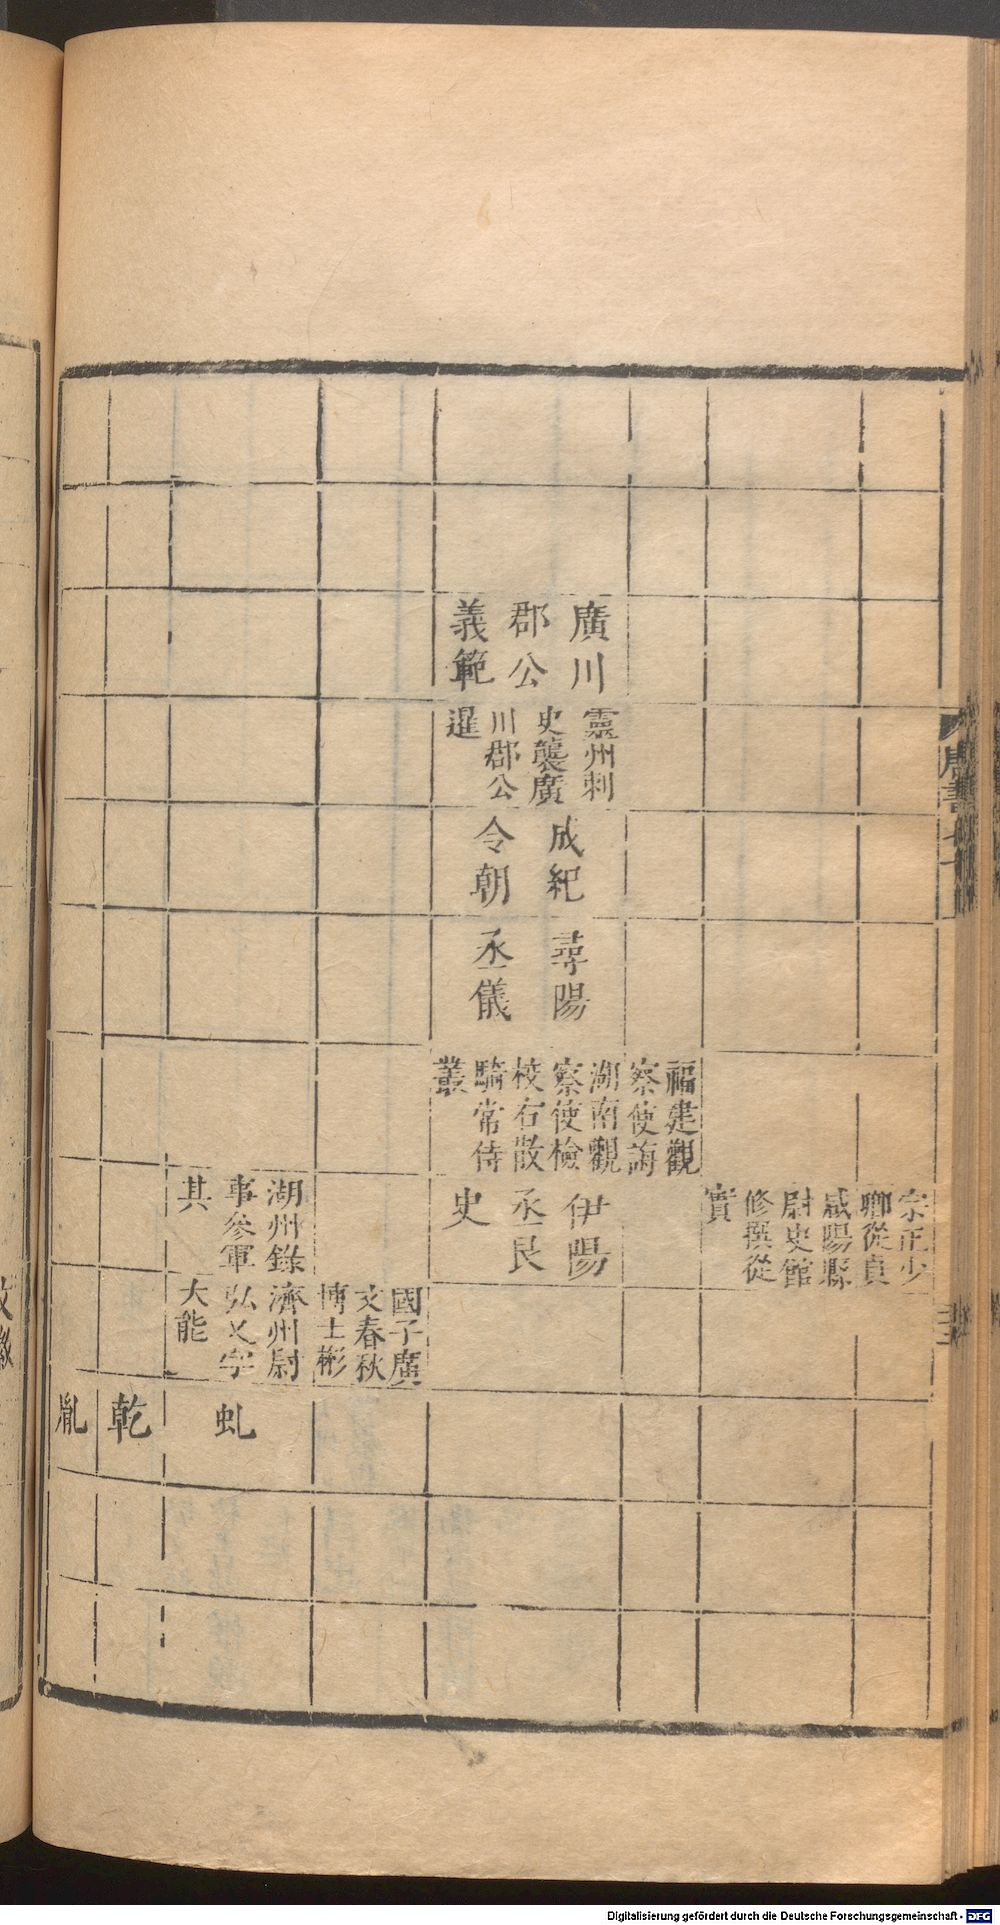 宗正少
卿從貞
咸陽縣
尉史館
修撰從
實
福建觀
察使誨
廣川
郡公
義範
靈州刺
史襲廣
川郡公
暹
成紀
令朝
尋陽
丞儀
湖南觀
察使檢
校右散
騎常侍
叢
伊陽
丞艮
史
國子廣
文春秋
博士彬
湖州錄
事參軍
其
濟州尉
弘乂字
大能
虬
乾
胤
Digitalisierung gefördert durch die Deutsche Forschungsgemeinschaft - DFG